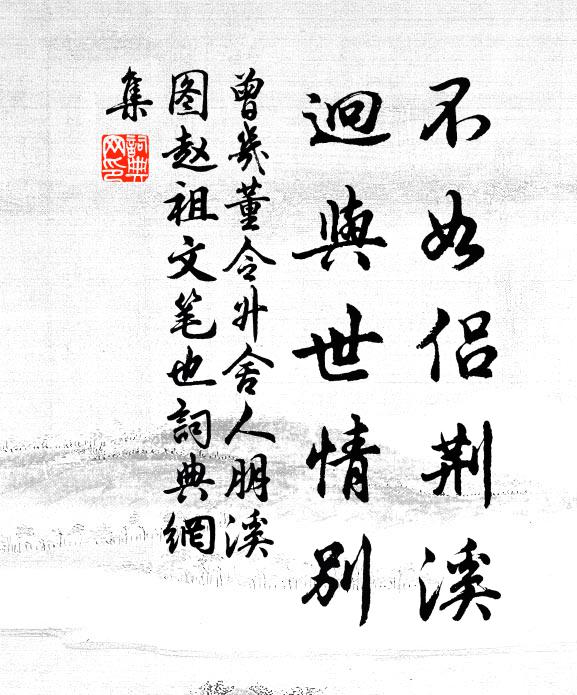 不如侣荆溪
迥與世情别
曾幾董令升舍人朋溪
图赵祖文笔也詞典網
集
詞典
网印